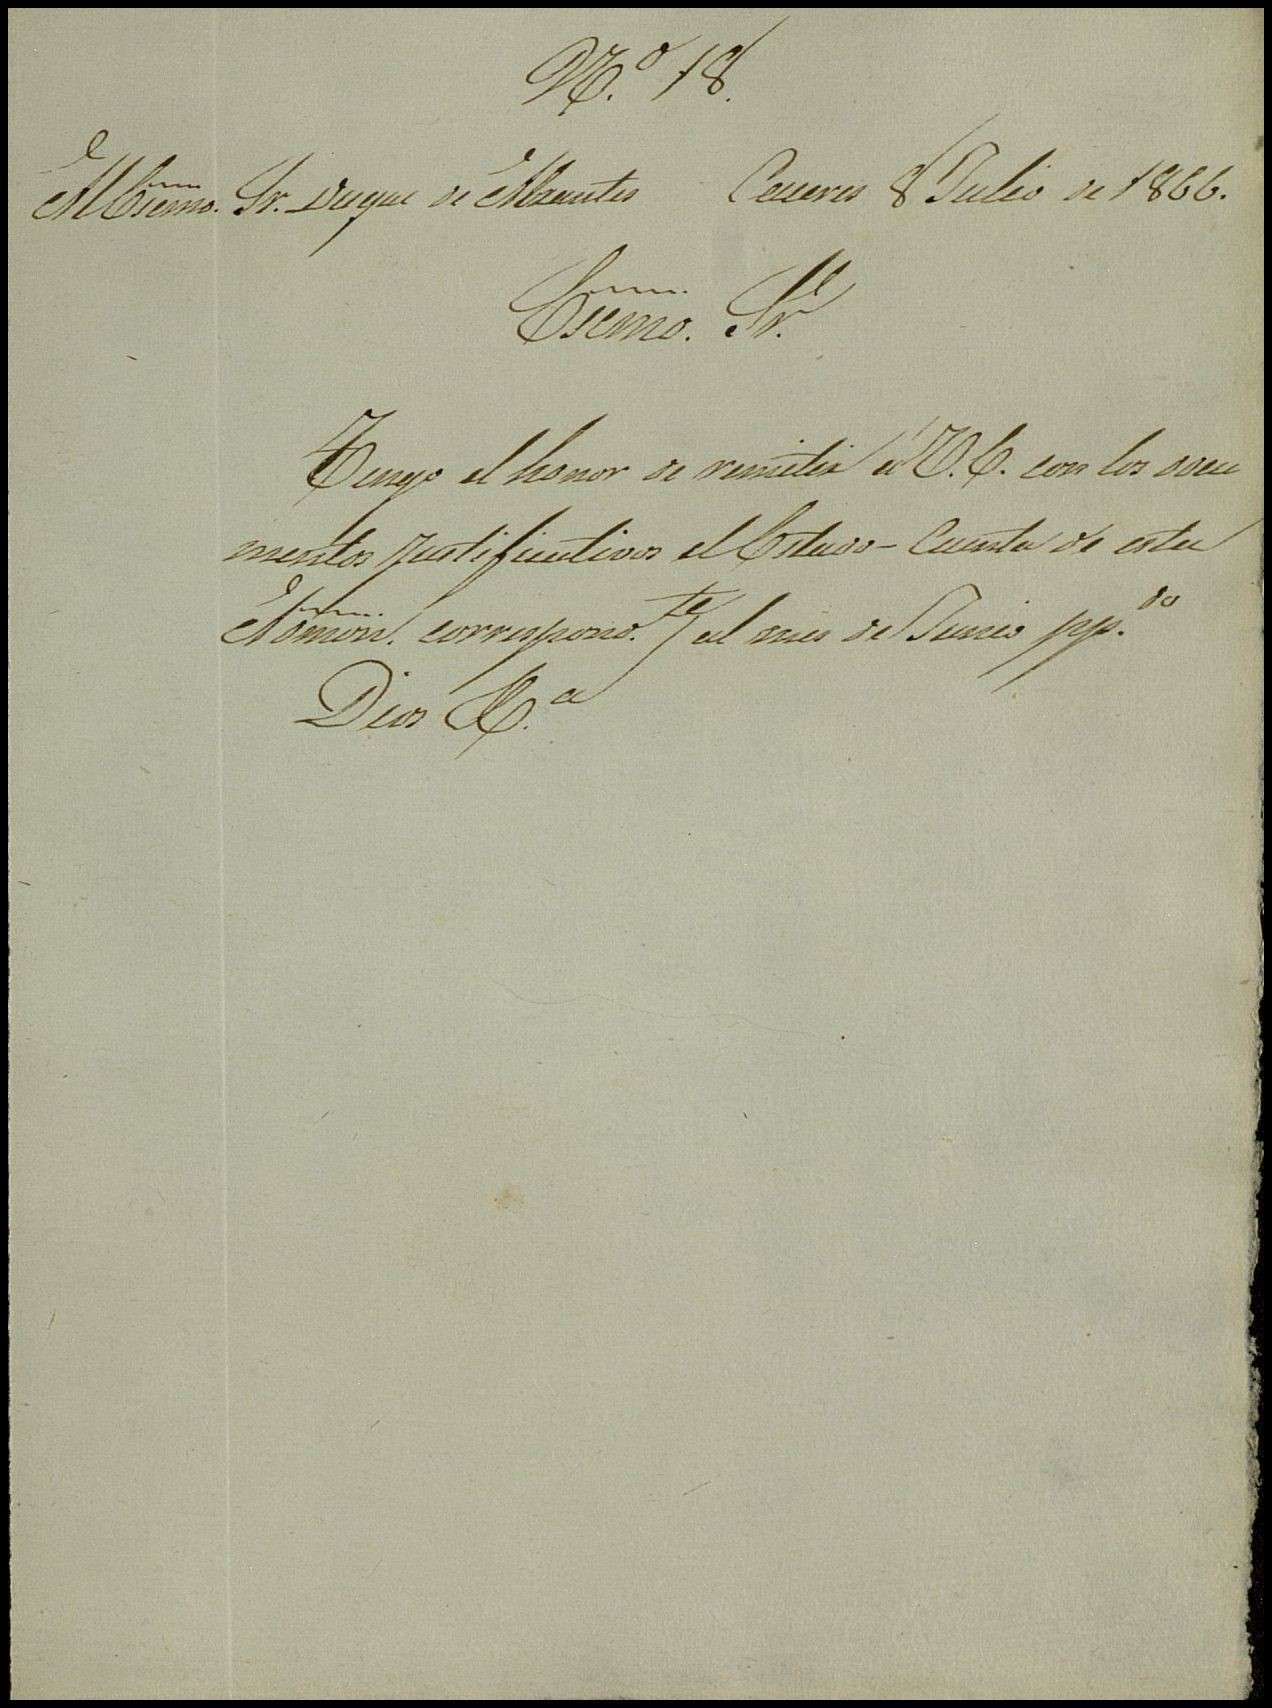 N.º 18.
Al Escmo. Sr. Duque de Abrantes Caceres 8 Julio de 1866.
Escmo. Sr.
Tengo el honor de remitir á V. E. con los docu
mentos justificativos el Estado-Cuenta de esta
Admon. correspond.te al mes de Junio pp.do
Dios &.a